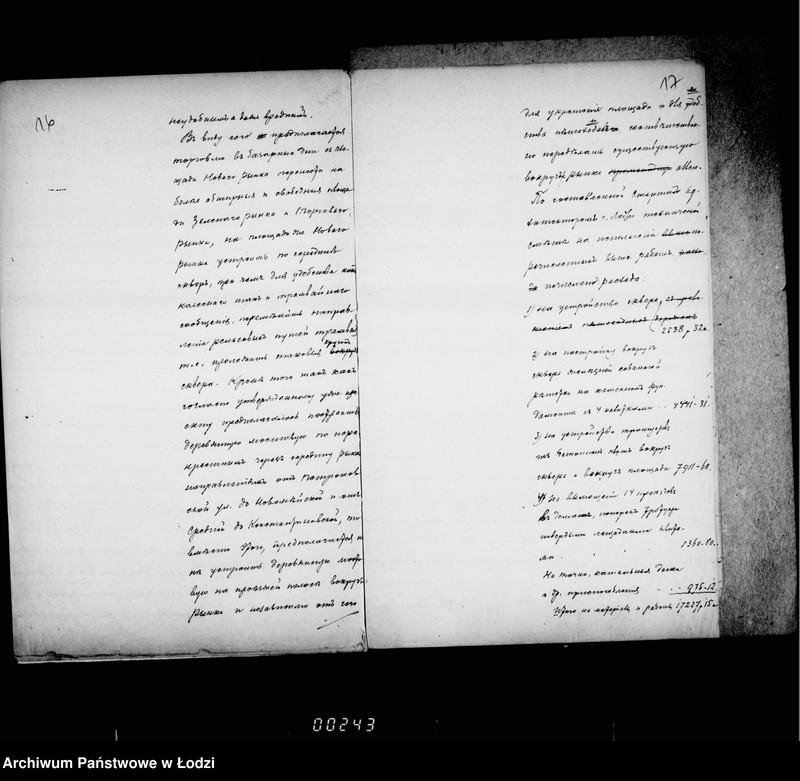 16
неудобным а даже вредным.
Въ виду сего предполагается
торговлю въ базарные дни съ пло-
щади Новаго рынка перенести на
болѣе обширныя и свободныя площа-
ди Зеленаго рынка и Торговаго
рынка, на площади же Новаго
рынка устроить по серединѣ
скверъ, при чемъ для удобства какъ
колеснаго такъ и трамвайнаго
сообщенія, перемѣнить направ-
леніе рельсовыхъ путей трамвая
т.е. проложить таковыя вокругъ
сквера. Кромѣ того такъ какъ
согласно утвержденному уже про-
екту предполагалось построить
деревянную мостовую по пере-
крестнымъ черезъ середину рынка
направленіямъ отъ Петроков-
ской ул. до Новомѣйской и отъ
Средней до Константиновской, то
вмѣсто этого, предполагается
устроить деревянную мосто-
вую на проѣзжей полосѣ вокругъ
рынка и независимо отъ сего
17
для украшенія площади и для удоб-
ства пѣшеходовъ
передѣлать существующую
вокругъ рынка аллею.
По составленной Старшимъ Ар-
хитекторомъ г. Лодзи технической
смѣтѣ на исполненіе пе-
речисленныхъ выше работъ,
исчислено расхода:
1) на устройство сквера,
2538 р 32 к
2) на постройку вокругъ
сквера желѣзной кованой
рѣшетки на каменномъ фун-
даментѣ съ 4 калитками . . 4441-31
3) на устройство тротуаровъ
вокругъ
сквера и вокругъ площади 7911-60.
4) На вымощеніе 14 проѣздовъ
въ дома, поперекъ тротуара
твердыми
1360.80.
На точно,
и др. приспособленія . . 975-12
Итого на матеріалъ и работы 17227 р. 15 к
00243
Archiwum Państwowe w Łodzi